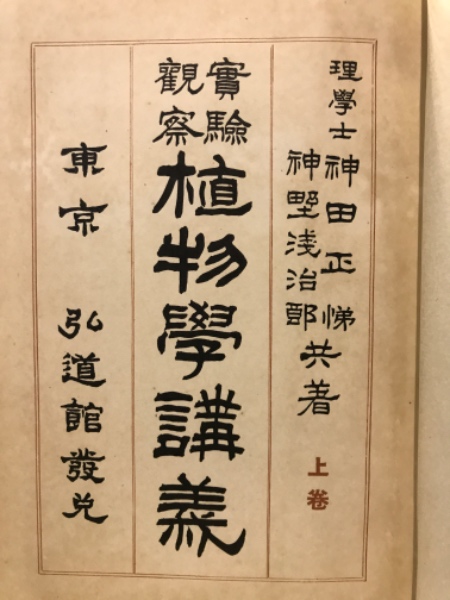 理學士神田正悌
神野淺治郎
共著
上卷
實驗
觀察
植物學講義
東京 弘道館發兌